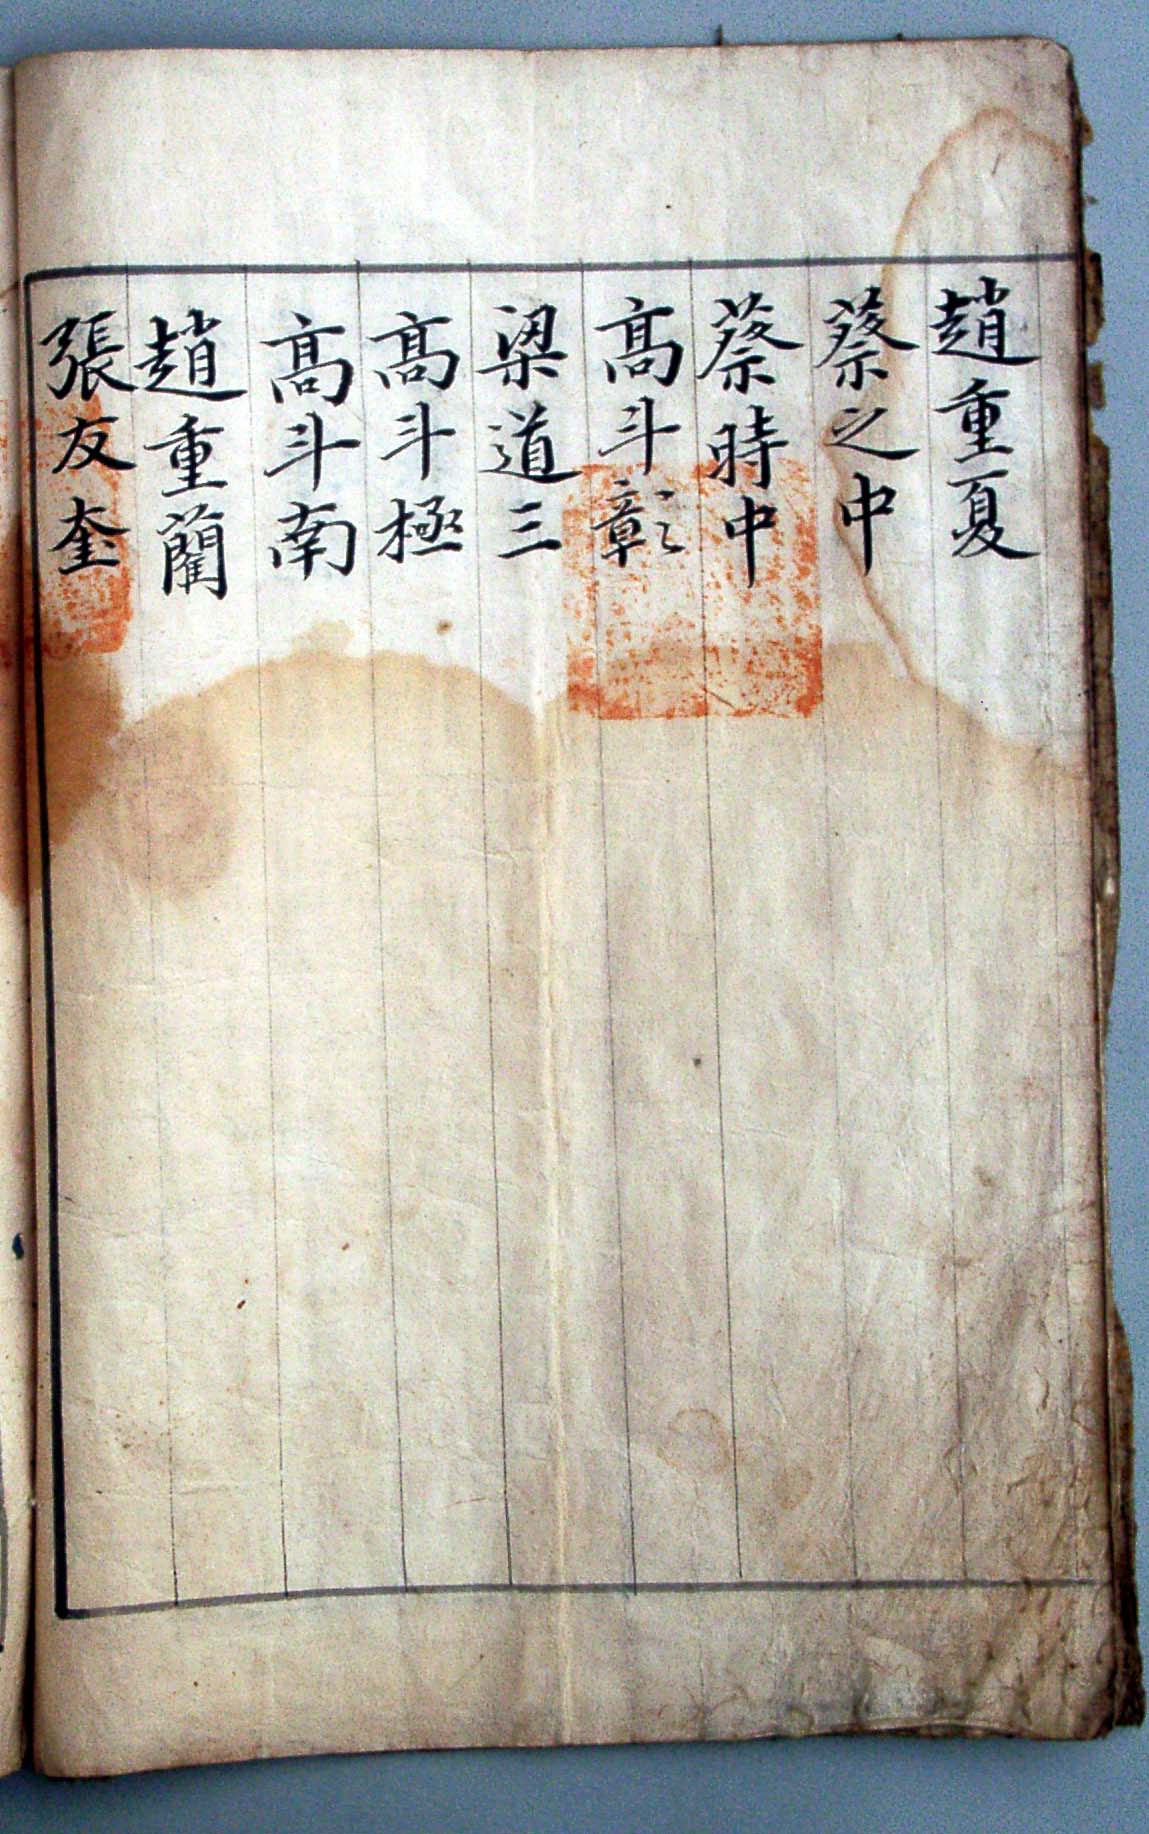 趙重夏
蔡之中
蔡時中
髙斗彰
梁道三
髙斗極
髙斗南
趙重藺
張友奎